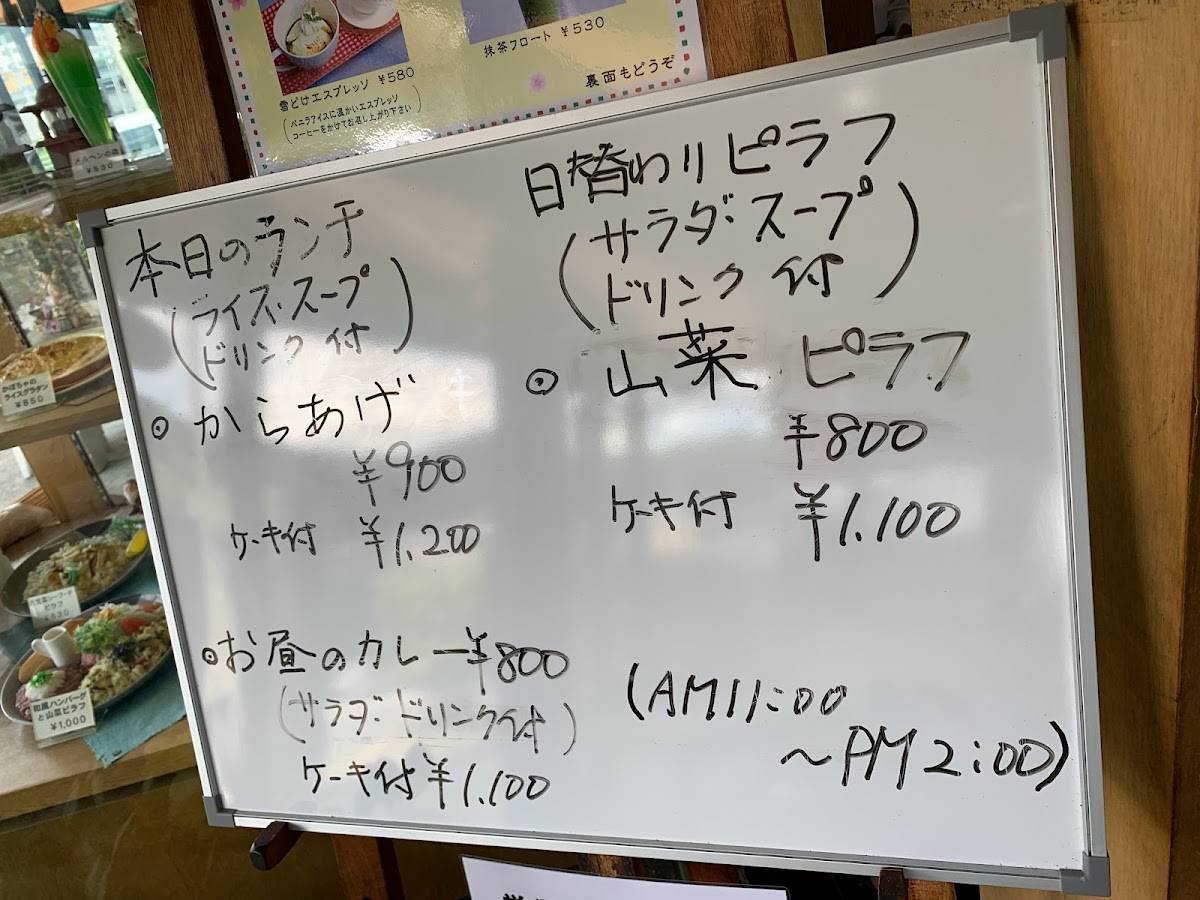 雪どけエスプレッソ ¥580
(バニラアイスに温かいエスプレッソ
コーヒーをかけてお召し上がり下さい)
抹茶フロート ¥530
裏面もどうぞ
本日のランチ
(ライス・スープ
ドリンク付)
◉ からあげ
¥900
ケーキ付 ¥1,200
◉お昼のカレー¥800
(サラダ・ドリンク付)
ケーキ付 ¥1,100
日替わりピラフ
(サラダ・スープ
ドリンク付)
◉ 山菜 ピラフ
¥800
ケーキ付 ¥1,100
(AM11:00
～PM2:00)
メルヘンの森
¥530
かぼちゃの
ライスグラタン
¥850
ピラフ
和風ハンバーグ
と山菜ピラフ
¥1,000